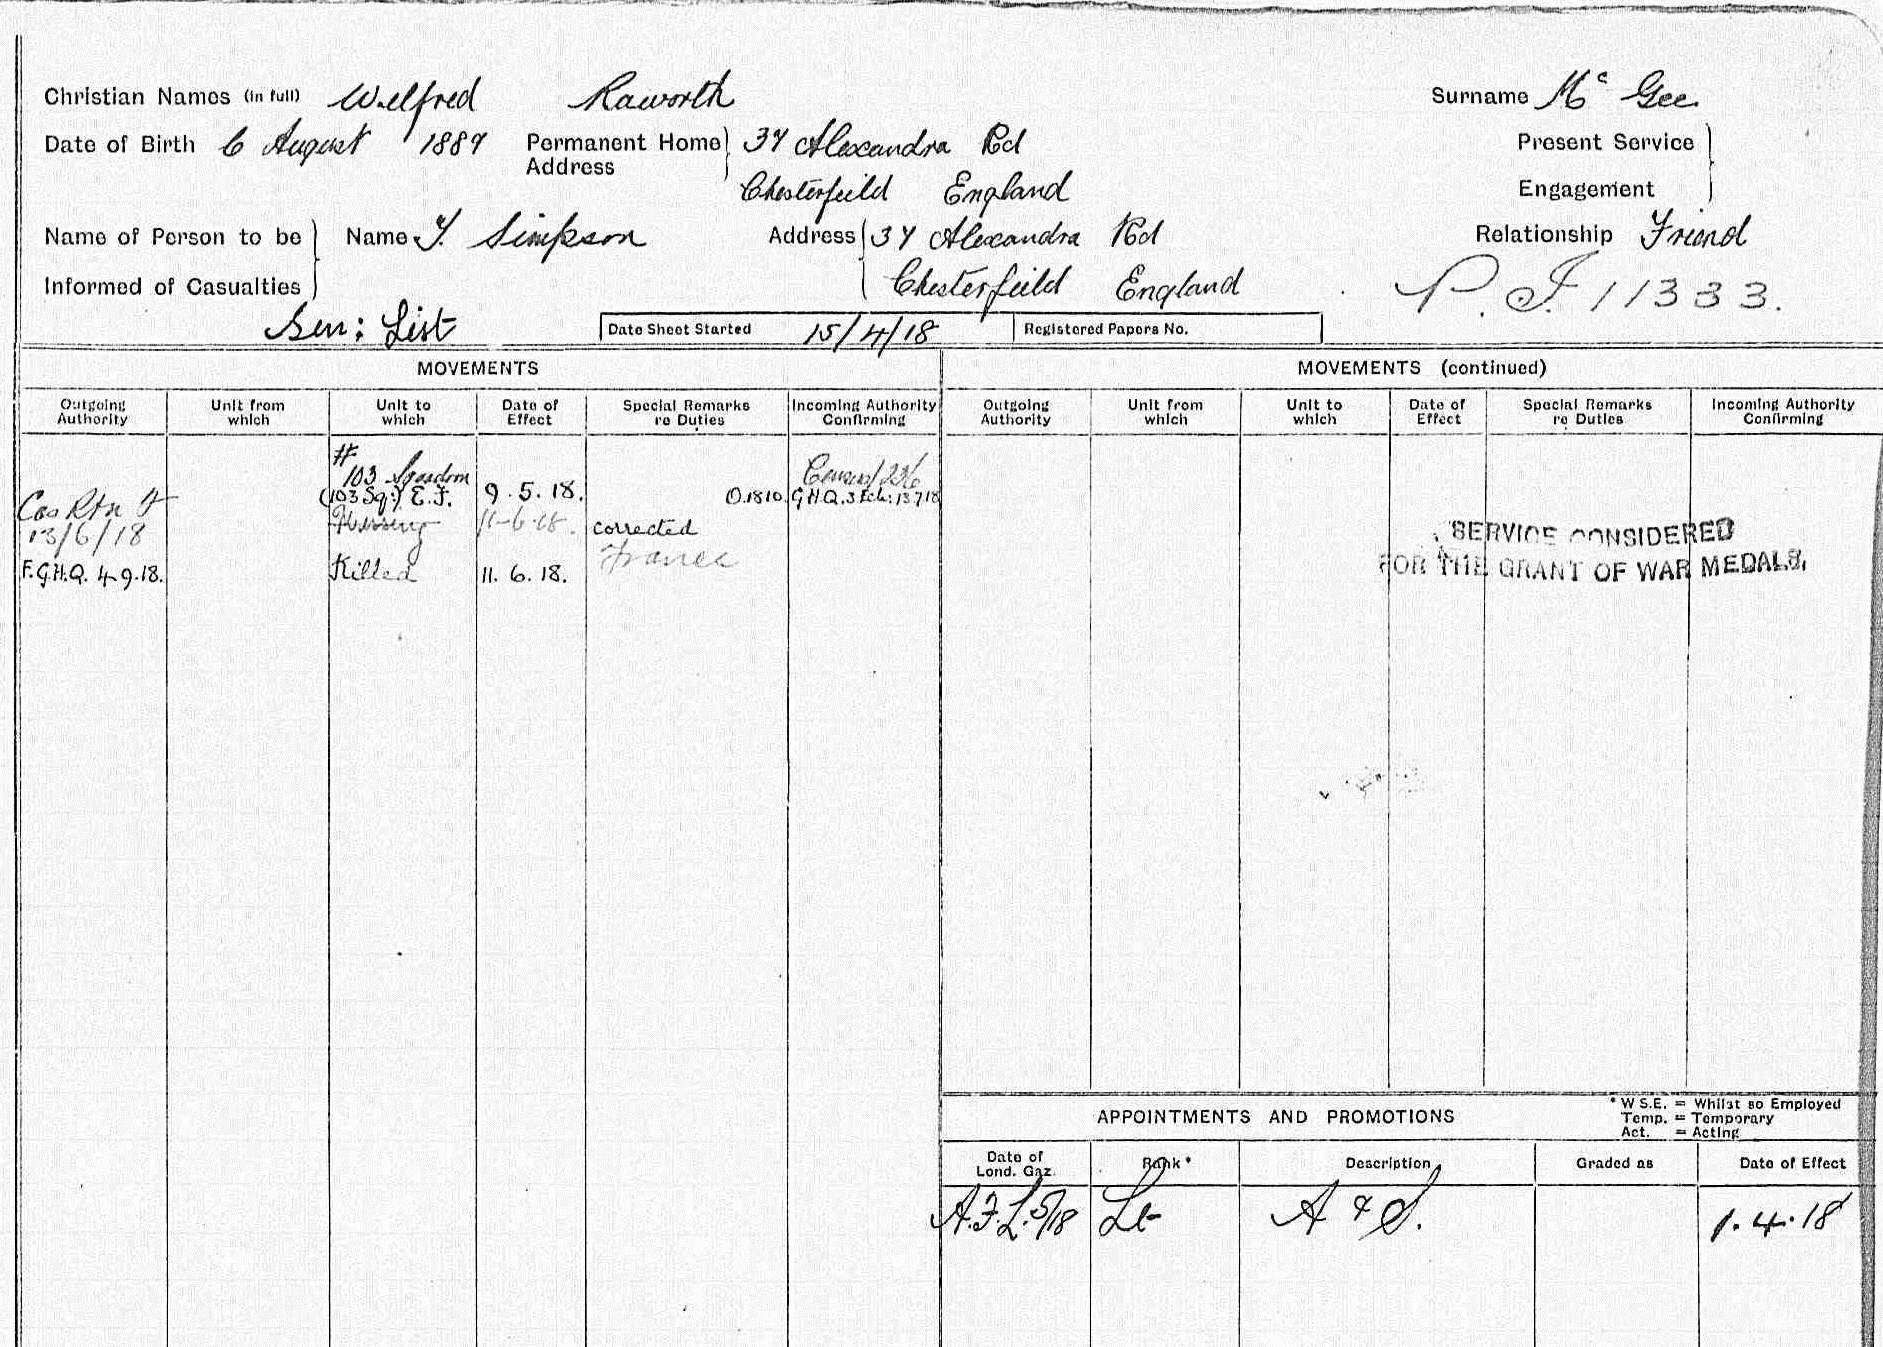 Christian Names (in full) Wilfred Raworth Surname Mc Gee
Date of Birth 6 August 1889 Permanent Home Address 37 Alexandra Rd Present Service
Chesterfield England Engagement
Name of Person to be Informed of Casualties Name Simpson Address 37 Alexandra Rd Relationship Friend
Chesterfield England P. I. 11333.
Gen: List Date Sheet Started 15/4/18 Registered Papers No.
MOVEMENTS MOVEMENTS (continued)
Outgoing Authority Unit from which Unit to which Date of Effect Special Remarks re Duties Incoming Authority Confirming Outgoing Authority Unit from which Unit to which Date of Effect Special Remarks re Duties Incoming Authority Confirming
103 Squadron
(103 Sq:) E.F. 9.5.18. O.1810. G.H.Q. 3 Ech: 13.7.18
Cas Rtn
13/6/18 Missing 11-6-18. corrected
France
F.G.H.Q. 4.9.18. Killed 11.6.18.
SERVICE CONSIDERED
FOR THE GRANT OF WAR MEDALS.
APPOINTMENTS AND PROMOTIONS
* W.S.E. = Whilst so Employed
Temp. = Temporary
Act. = Acting
Date of Lond. Gaz. Rank * Description Graded as Date of Effect
A.F.L. 5/18 Lt A & S. 1.4.18